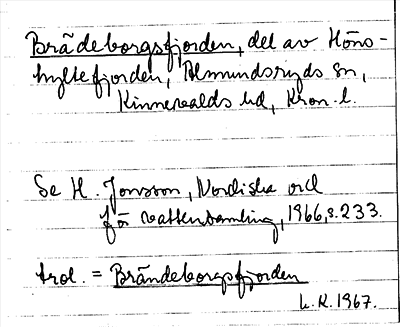 Brädeborgsfjorden, del av Höns-
hyltefjorden, Almundsryds sn,
Kinnevalds hd, Kron. l.
Se H. Jonsson, Nordiska ord
för vattensamling, 1966, s. 233.
trol. = Brändeborgsfjorden
L. R. 1967.